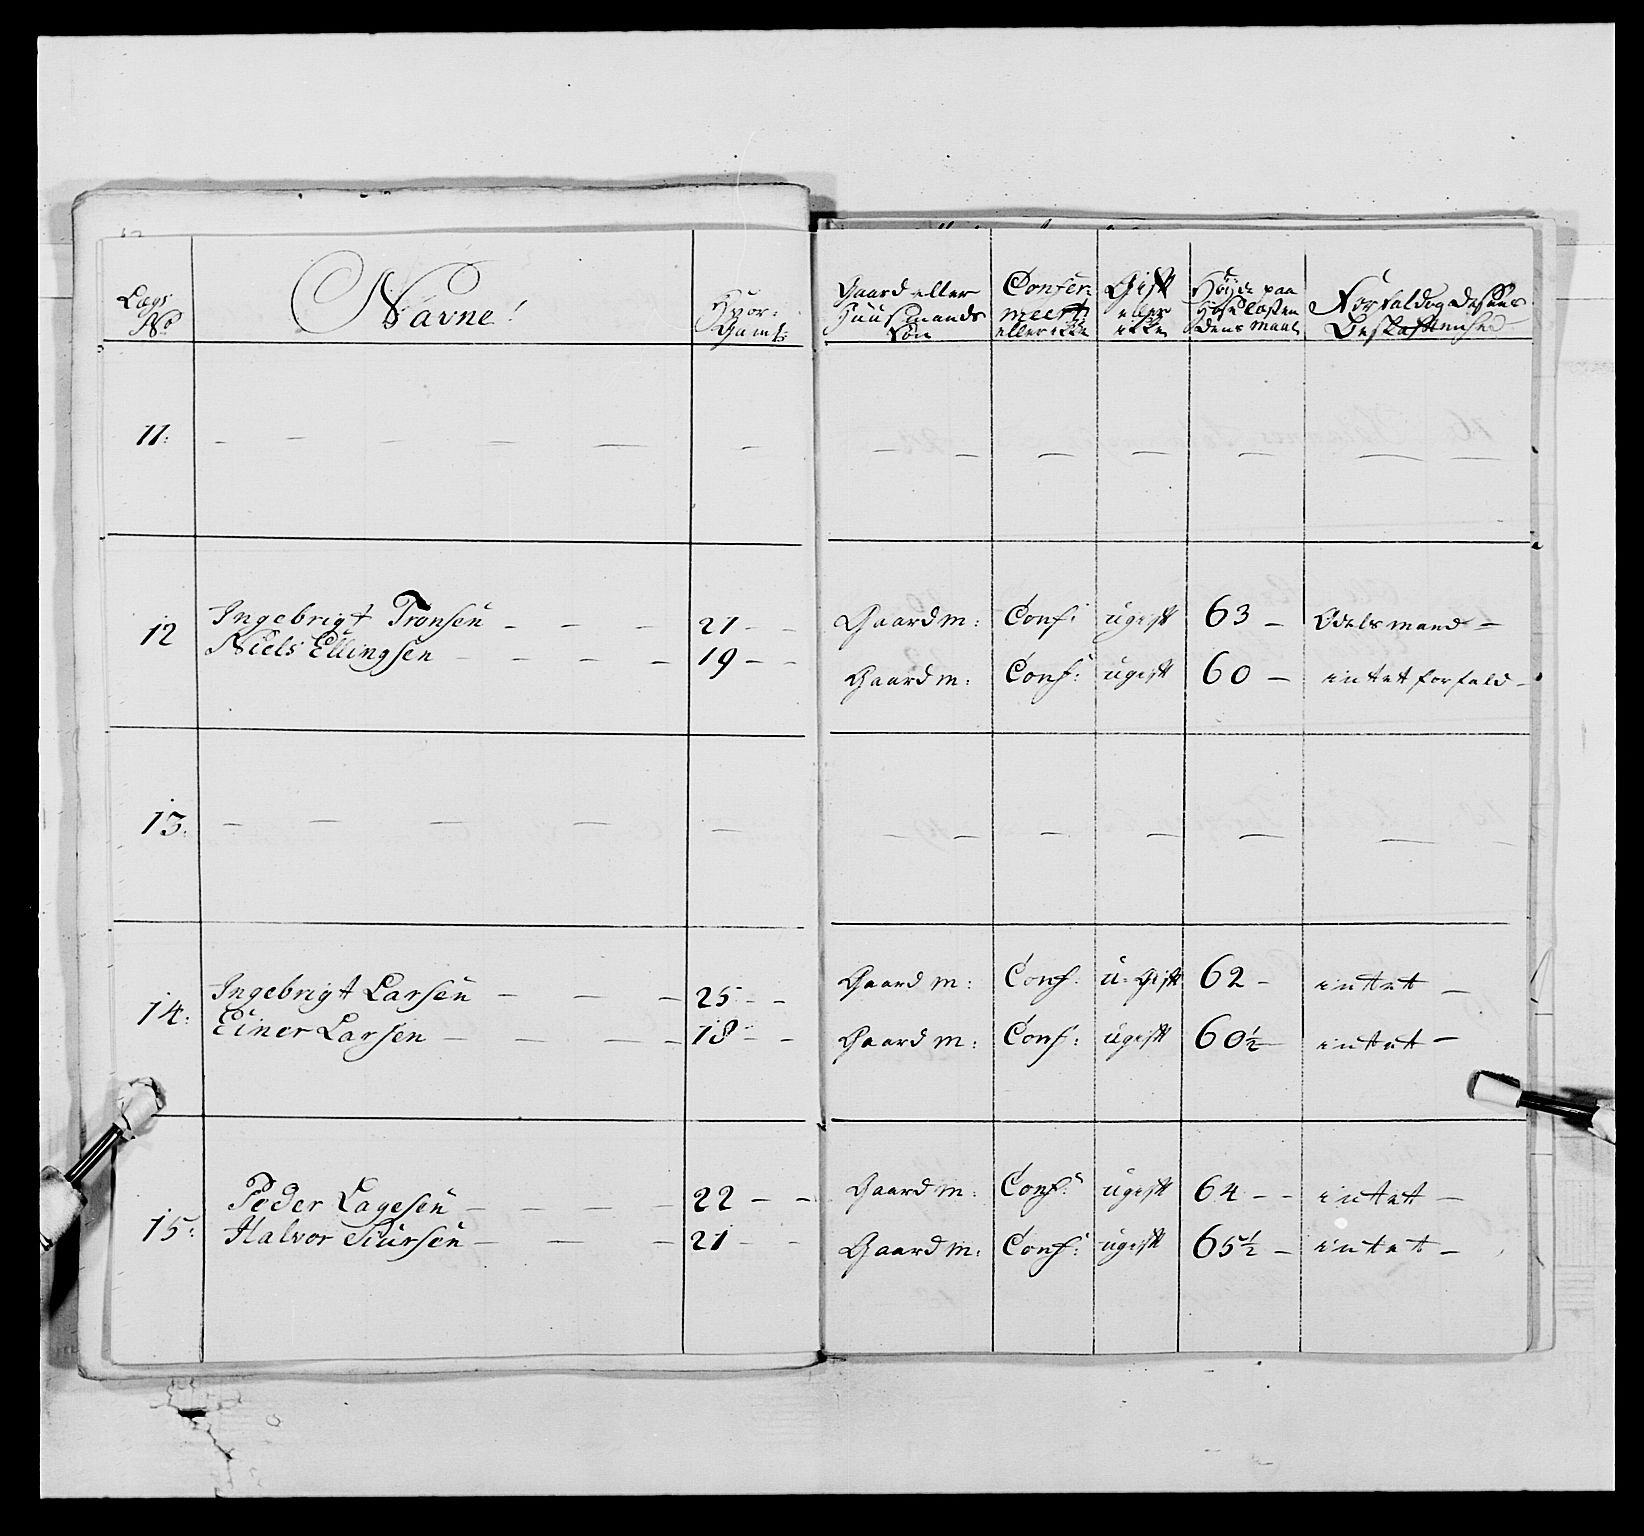 Lægs No | Navne | Hvor Gaml: | Gaard eller Huusmands Søn | Confermeert eller ikke | Gift eller ikke | Høyde paa Hose Læsten dens Maal | Forfald og desses Beskaffenhed
11: — — — — — — — — — — — — —
12 Ingebrigt Tronsen — — — 21 — — Gaardm: Conf: ugift 63 — Odelsmand —
Niels Ellingsen — — — — 19 — — Gaardm: Conf: ugift 60 — intet forfald —
13: — — — — — — — — — — — —
14: Ingebrigt Larsen — — — 25 — — Gaardm: Conf: u-gift 62 — intet —
Einer Larsen — — — — 18 — — Gaardm: Conf: ugift 60½ intet —
15: Peder Lagesen — — — — 22 — — Gaardm: Conf: ugift 64 — — intet —
Halvor Siursen — — — 21 — — Gaardm: Conf: ugift 65½ — intet —